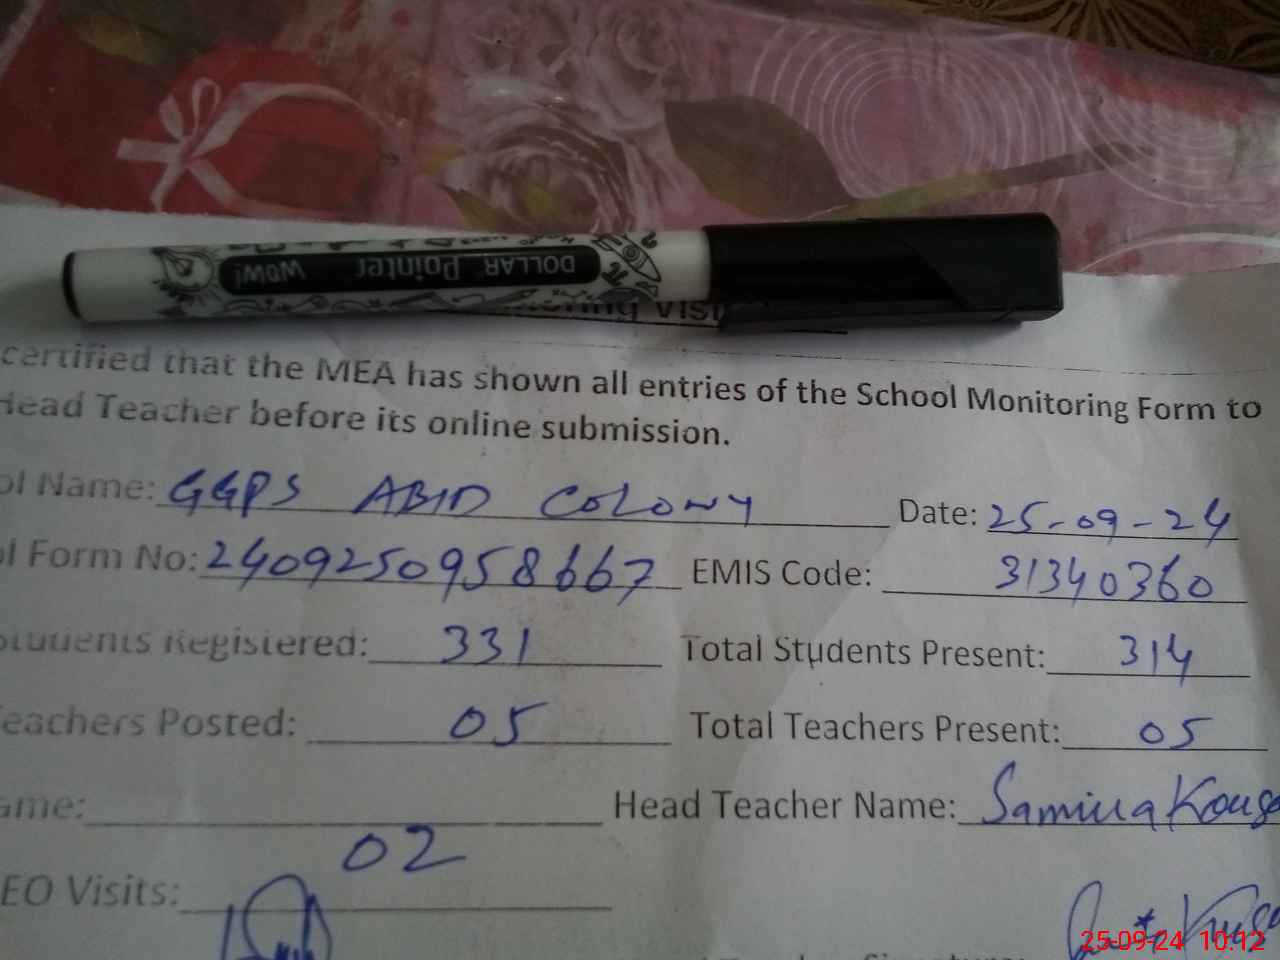 DOLLAR Pointer WOW!
certified that the MEA has shown all entries of the School Monitoring Form to
Head Teacher before its online submission.
ol Name: GGPS ABID COLONY Date: 25-09-24
ol Form No: 2409250958667 EMIS Code: 31340360
Students Registered: 331 Total Students Present: 314
Teachers Posted: 05 Total Teachers Present: 05
ame: Head Teacher Name: Samina Kous
EO Visits: 02
25-09-24 10:12